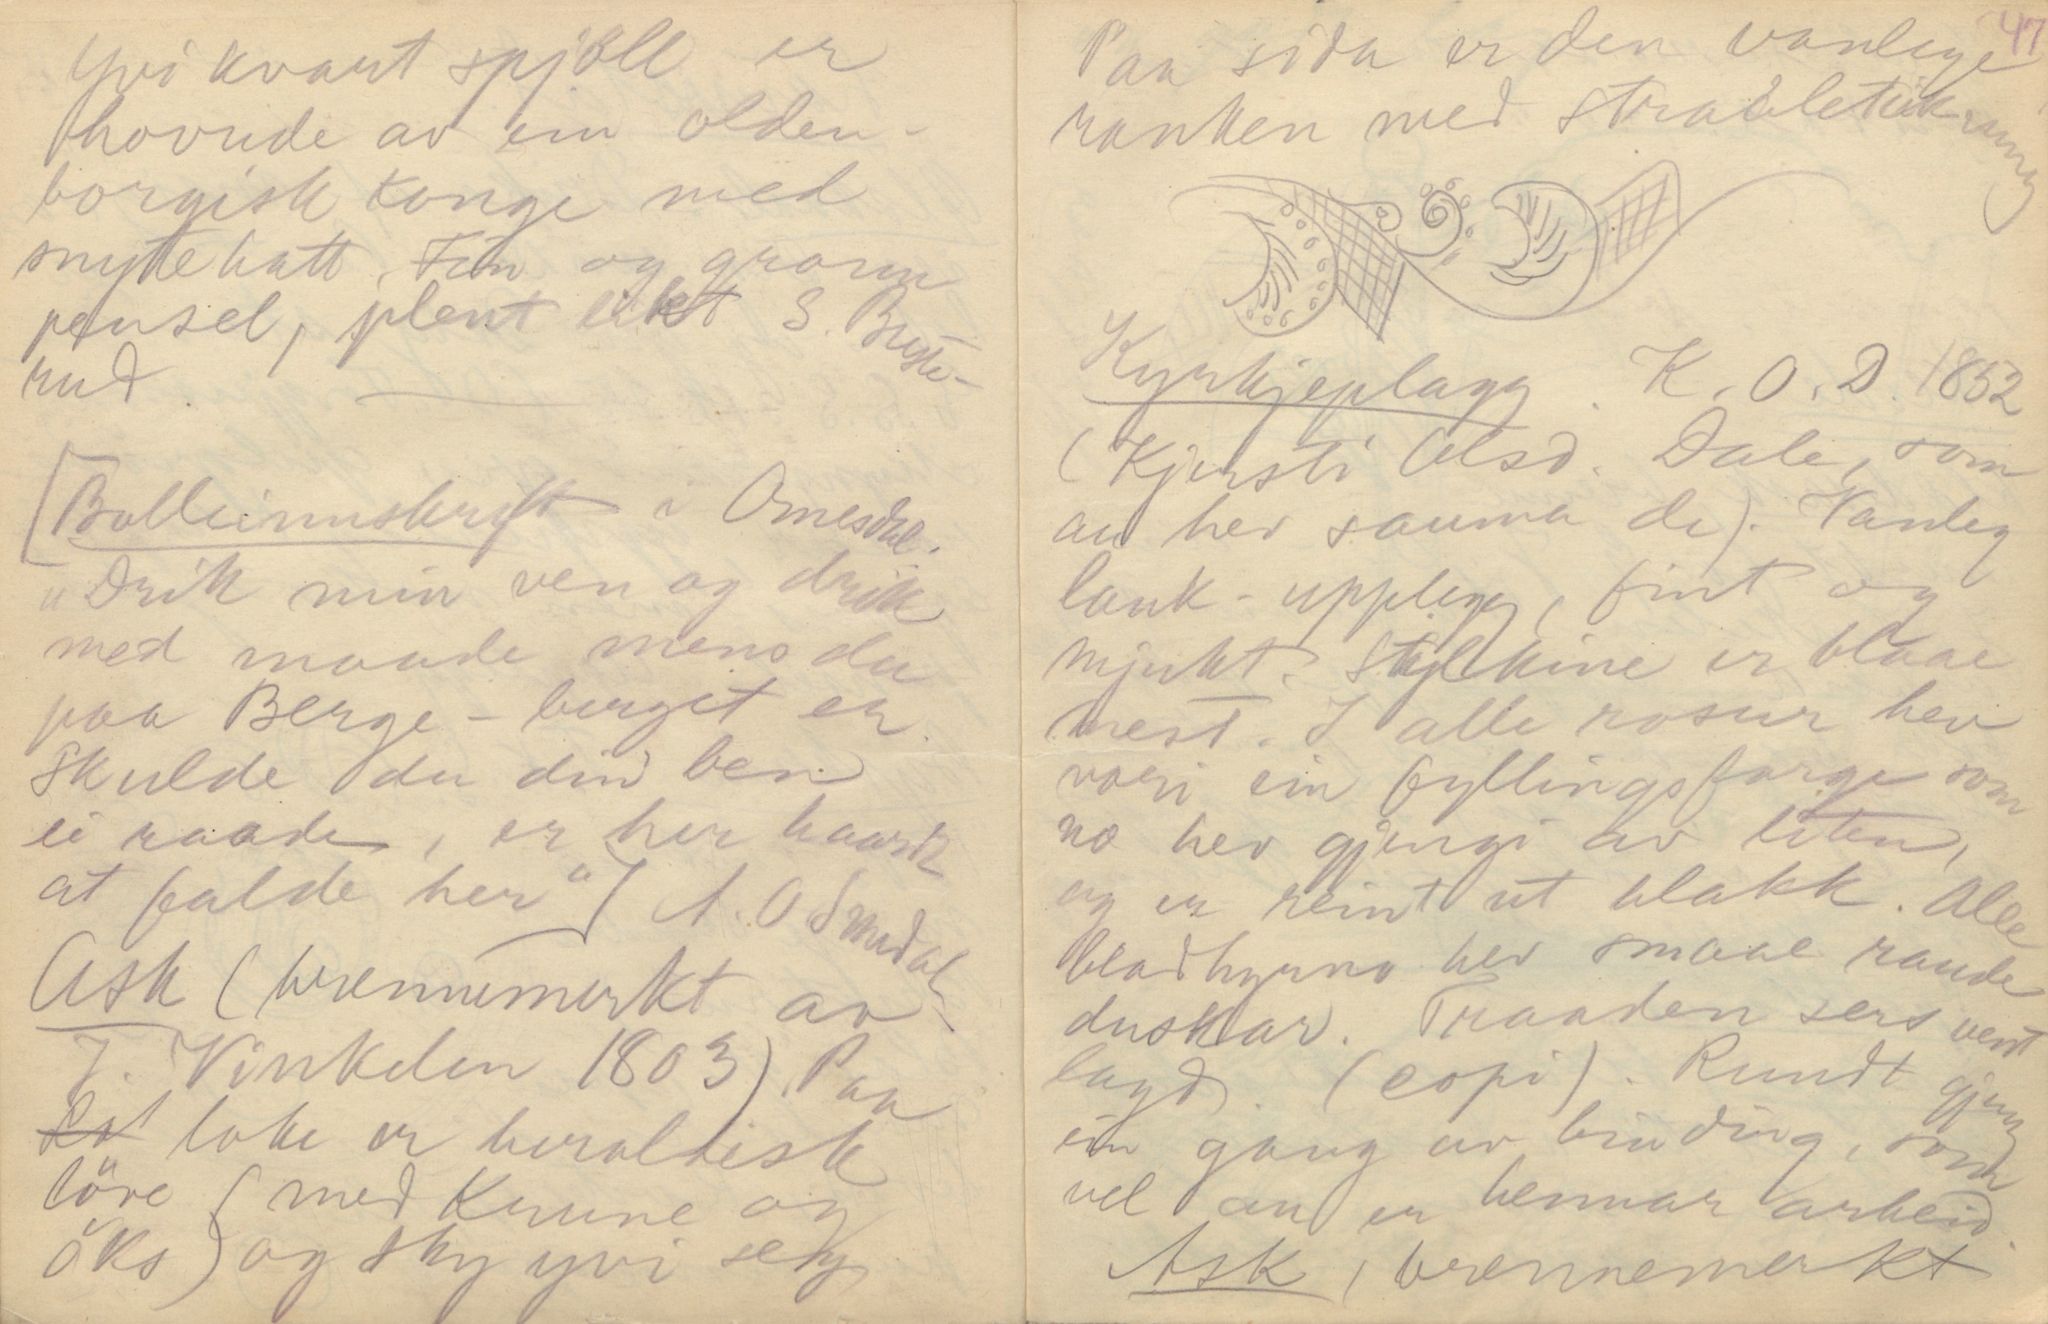 Yvi kvart spjöll er
hovude av ein olden-
borgisk konge med
snytehatt. Fin og grann
pensel, plent likt S. Buste-
rud.
[Bolleinnskrift i Omesdal.
"Drik min ven og drik
med maade mens du
paa Berge-berget er.
Skulde du din ben
ei raade, er her haardt
at falde her" (A. O Smedal)
Ask (brennemerkt av
T. Vinkelen 1803). Paa
loke er heraldisk
löve (med krune og
öks) og sky yvi seg
47
Paa sida er den vanlege
ranken med straaleteikning
Kyrkjeplagg. K. O. D. 1852
(Kjersti Olsd. Dale, som
au hev sauma de). Vanleg
lauk-upplegg, fint og
mjukt. Stylkine er blaae
mest. I alle rosur hev
vori ein fyllingsfarge som
no hev gjengi av liten,
og er reint ut blakk. Alle
bladhyrno hev smaae raude
duskar. Traaden sers vent
lagd. (copi). Rundt gjeng
ein gang av binding, som
vel au er hennar arbeid.
Ask, brennemerkt